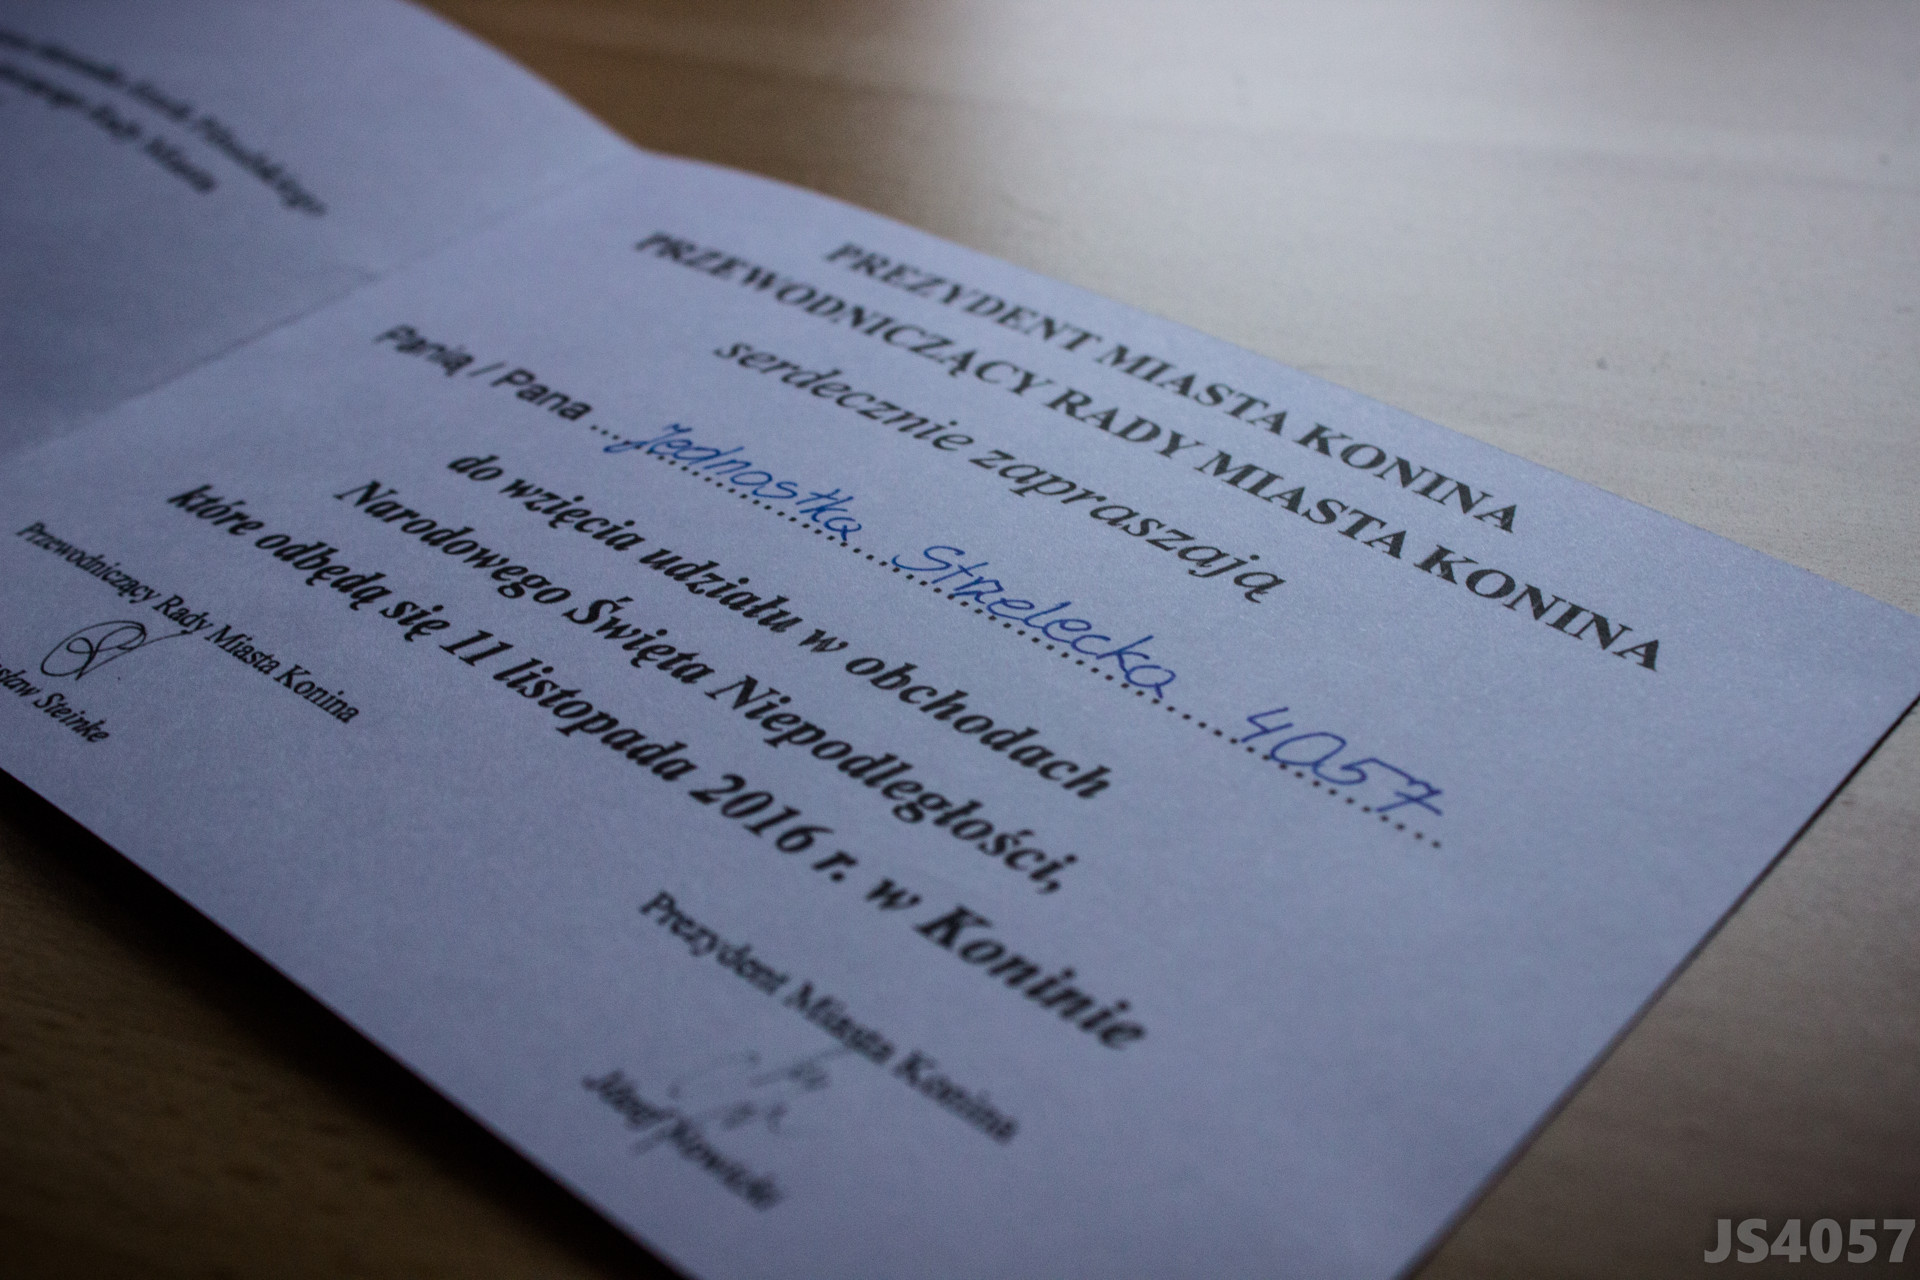 Józefa Piłsudskiego
Rady Miasta
PREZYDENT MIASTA KONINA
PRZEWODNICZĄCY RADY MIASTA KONINA
serdecznie zapraszają
Panią / Pana ... Jednostka Strzelecka 4057
do wzięcia udziału w obchodach
Narodowego Święta Niepodległości,
które odbędą się 11 listopada 2016 r. w Koninie
Przewodniczący Rady Miasta Konina
Steinke
Prezydent Miasta Konina
Józef Nowicki
JS4057